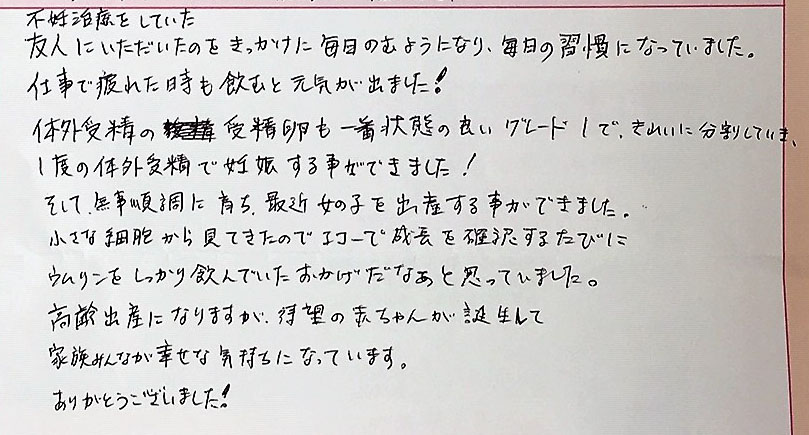 不妊治療をしていた
友人にいただいたのをきっかけに毎日のむようになり、毎日の習慣になっていました。
仕事で疲れた時も飲むと元気が出ました!
体外受精の 受精卵も一番状態の良いグレード1で、きれいに分割していき、
1度の体外受精で妊娠する事ができました!
そして、無事順調に育ち、最近女の子を出産する事ができました。
小さな細胞から見てきたのでエコーで成長を確認するたびに
ウムリンをしっかり飲んでいたおかげだなあと思っていました。
高齢出産になりますが、待望の赤ちゃんが誕生して
家族みんなが幸せな気持ちになっています。
ありがとうございました!